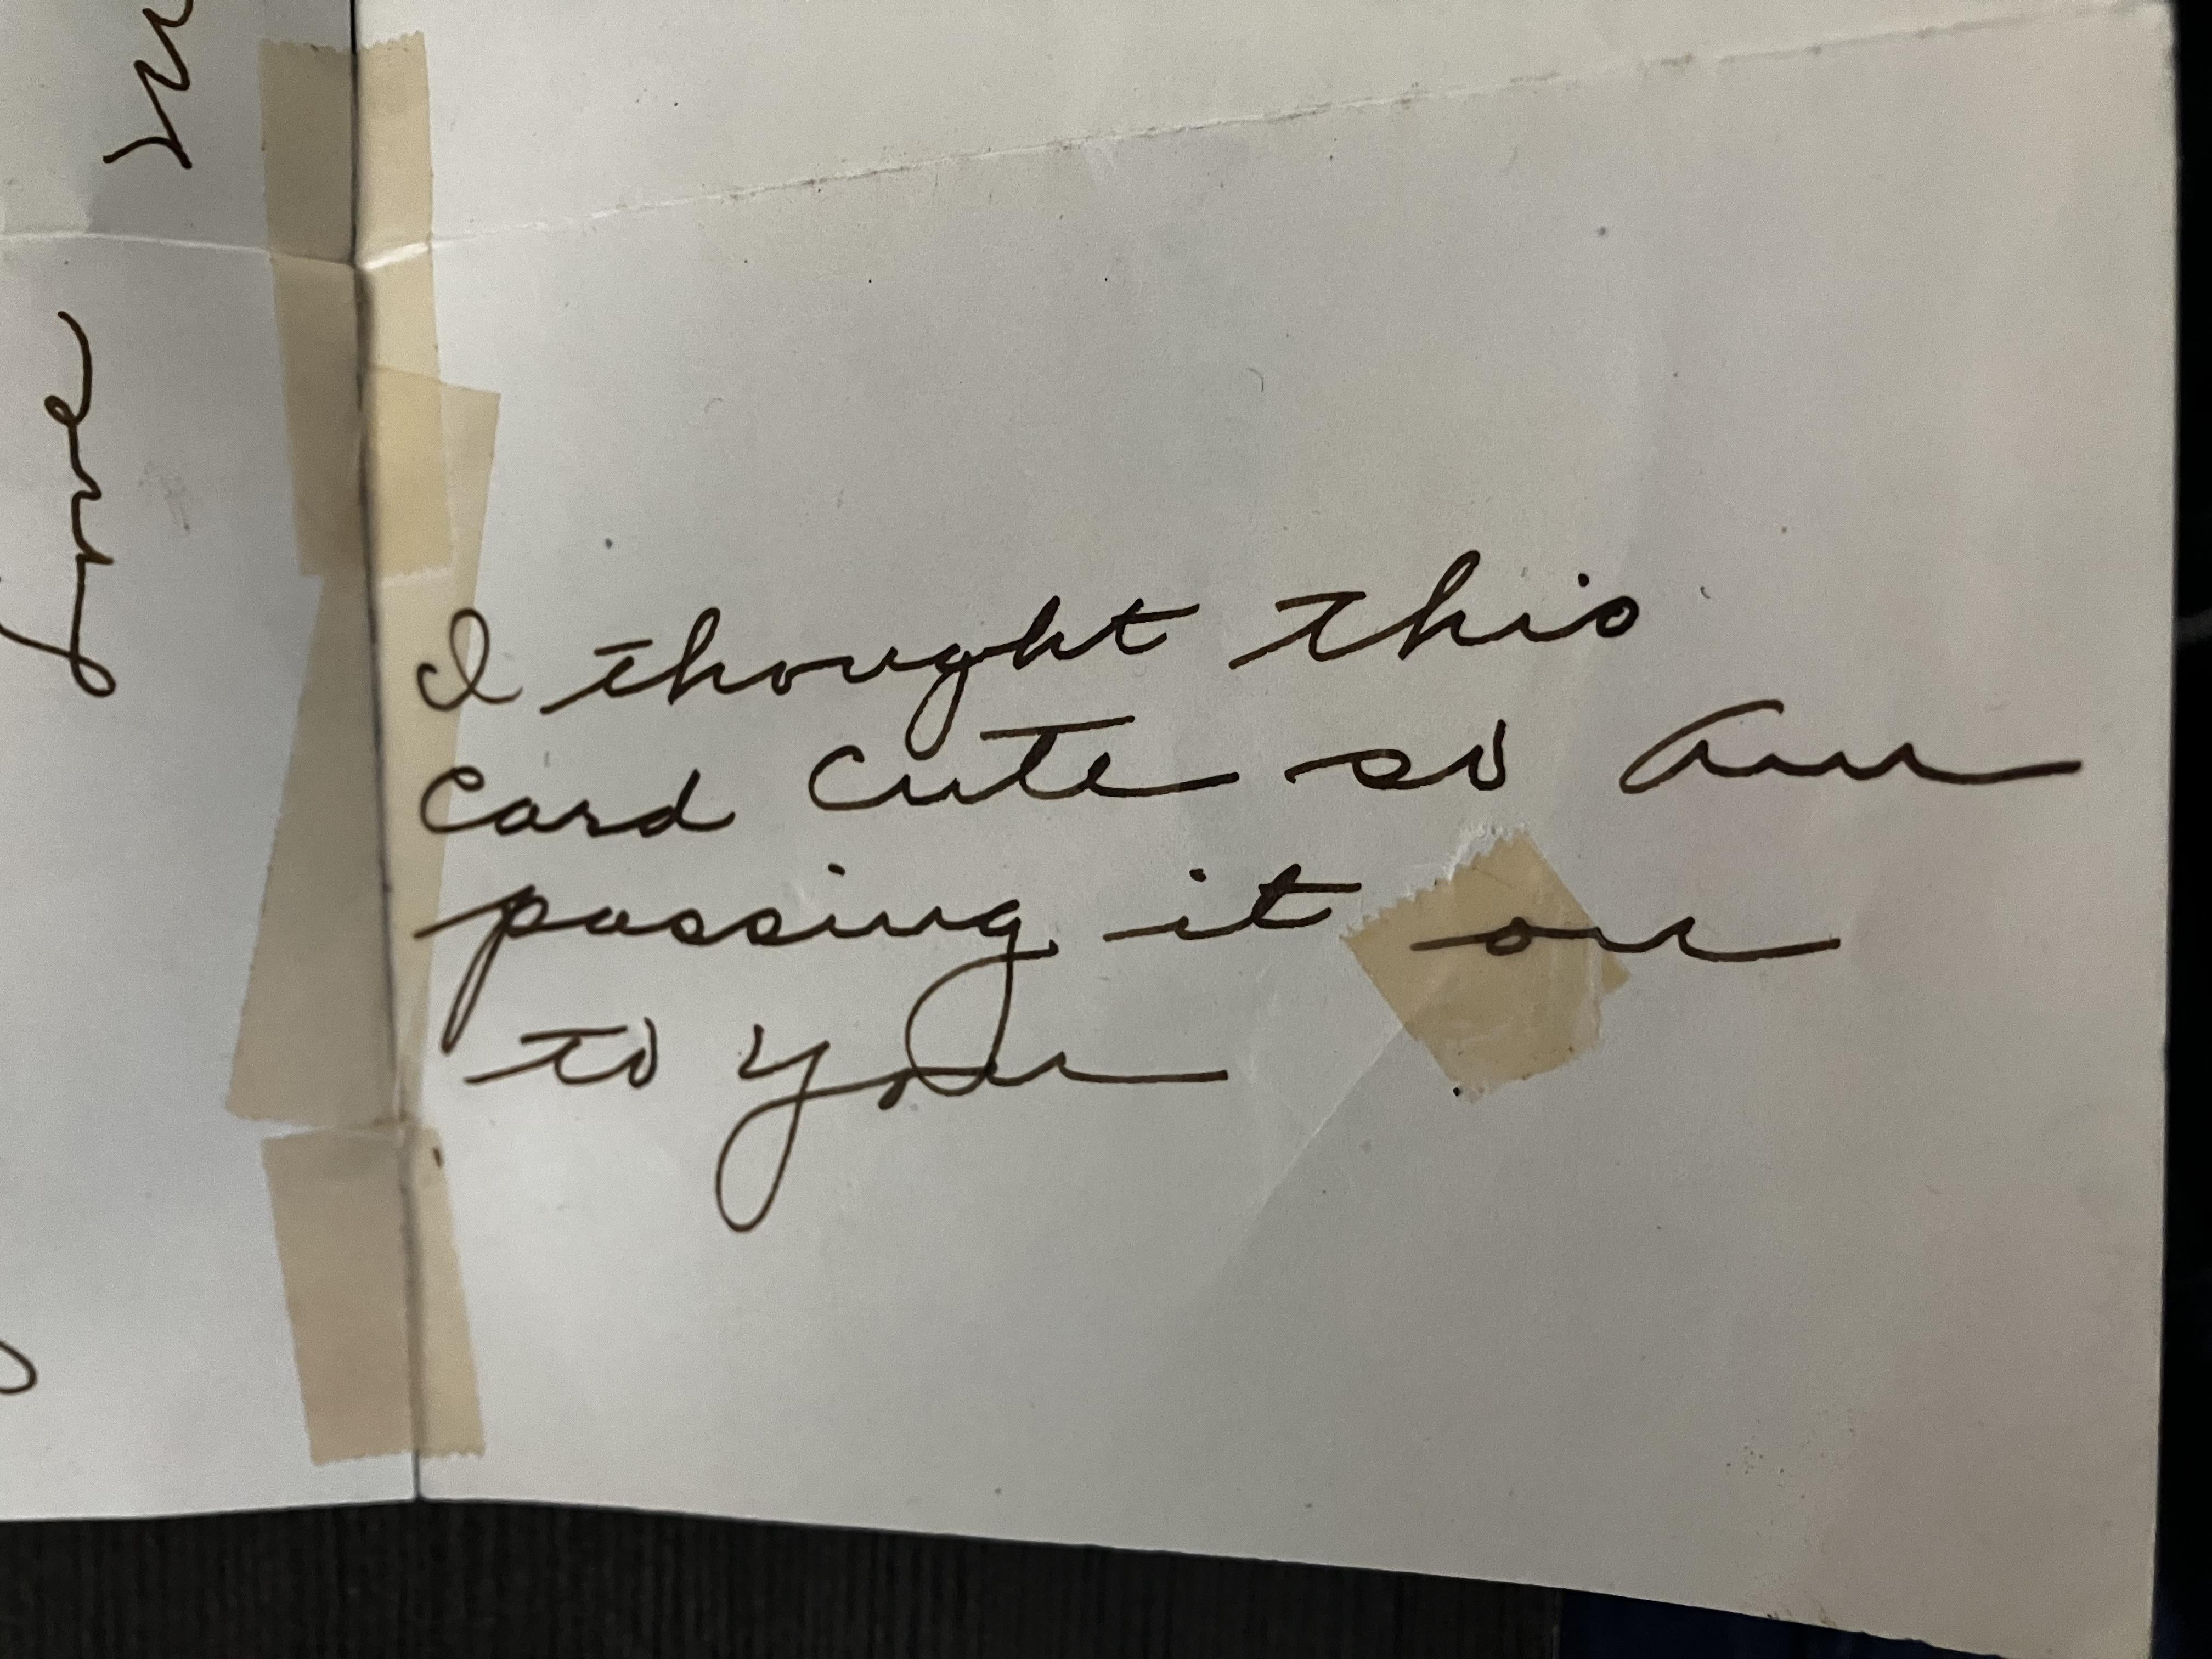 I thought this
card cute so am
passing it on
to you